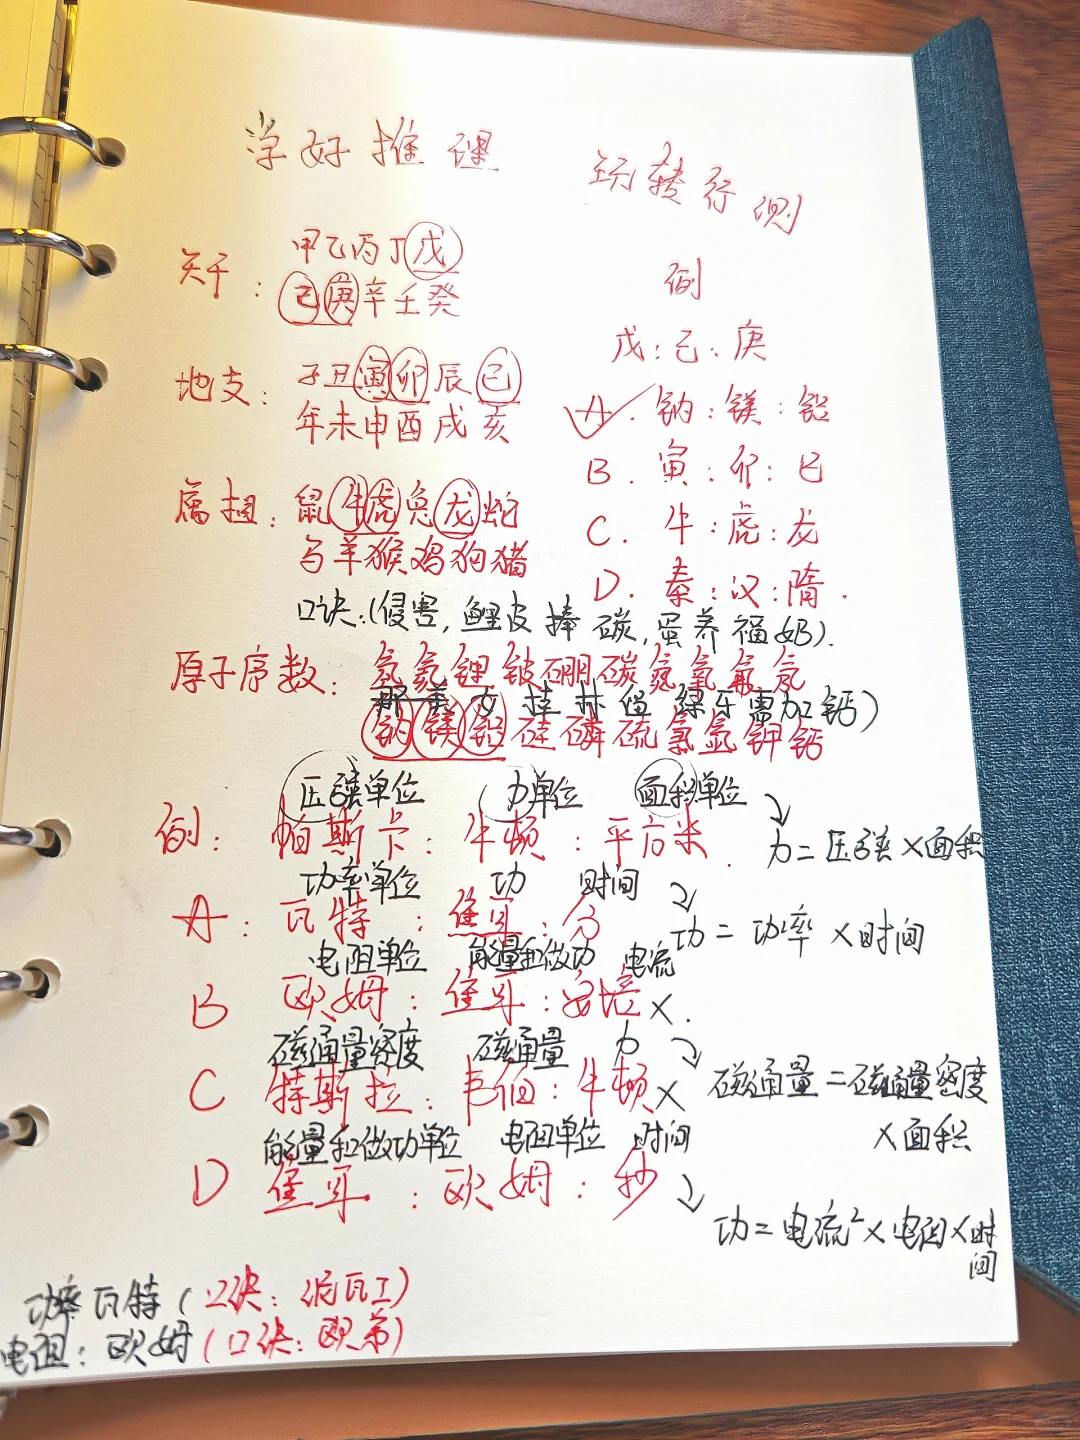 学好推理 玩转行测
天干： 甲乙丙丁戊
己庚辛壬癸
例
戊：己：庚
地支： 子丑寅卯辰巳
午未申酉戌亥
A. 钠：镁：铝
B. 寅：卯：巳
属相： 鼠牛虎兔龙蛇
马羊猴鸡狗猪
C. 牛：虎：龙
D. 秦：汉：隋.
口诀：(侵害，鲤皮捧碳，蛋养福奶).
原子序数： 氢氦锂铍硼碳氮氧氟氖
那美女桂林留绿牙需加钙)
钠镁铝硅磷硫氯氩钾钙
压强单位 (力单位 面积单位
例： 帕斯卡：牛顿：平方米. 力=压强×面积
功率单位 功 时间
A： 瓦特：焦耳：分 功=功率×时间
电阻单位 能量和做功 电流
B 欧姆：焦耳：安培×.
磁通量密度 磁通量 力
C 特斯拉：韦伯：牛顿× 磁通量=磁通量密度
×面积
能量和做功单位 电阻单位 时间
D 焦耳：欧姆：秒
功=电流²×电阻×时间
功率瓦特(口诀：泥瓦工)
电阻：欧姆(口诀：欧弟)